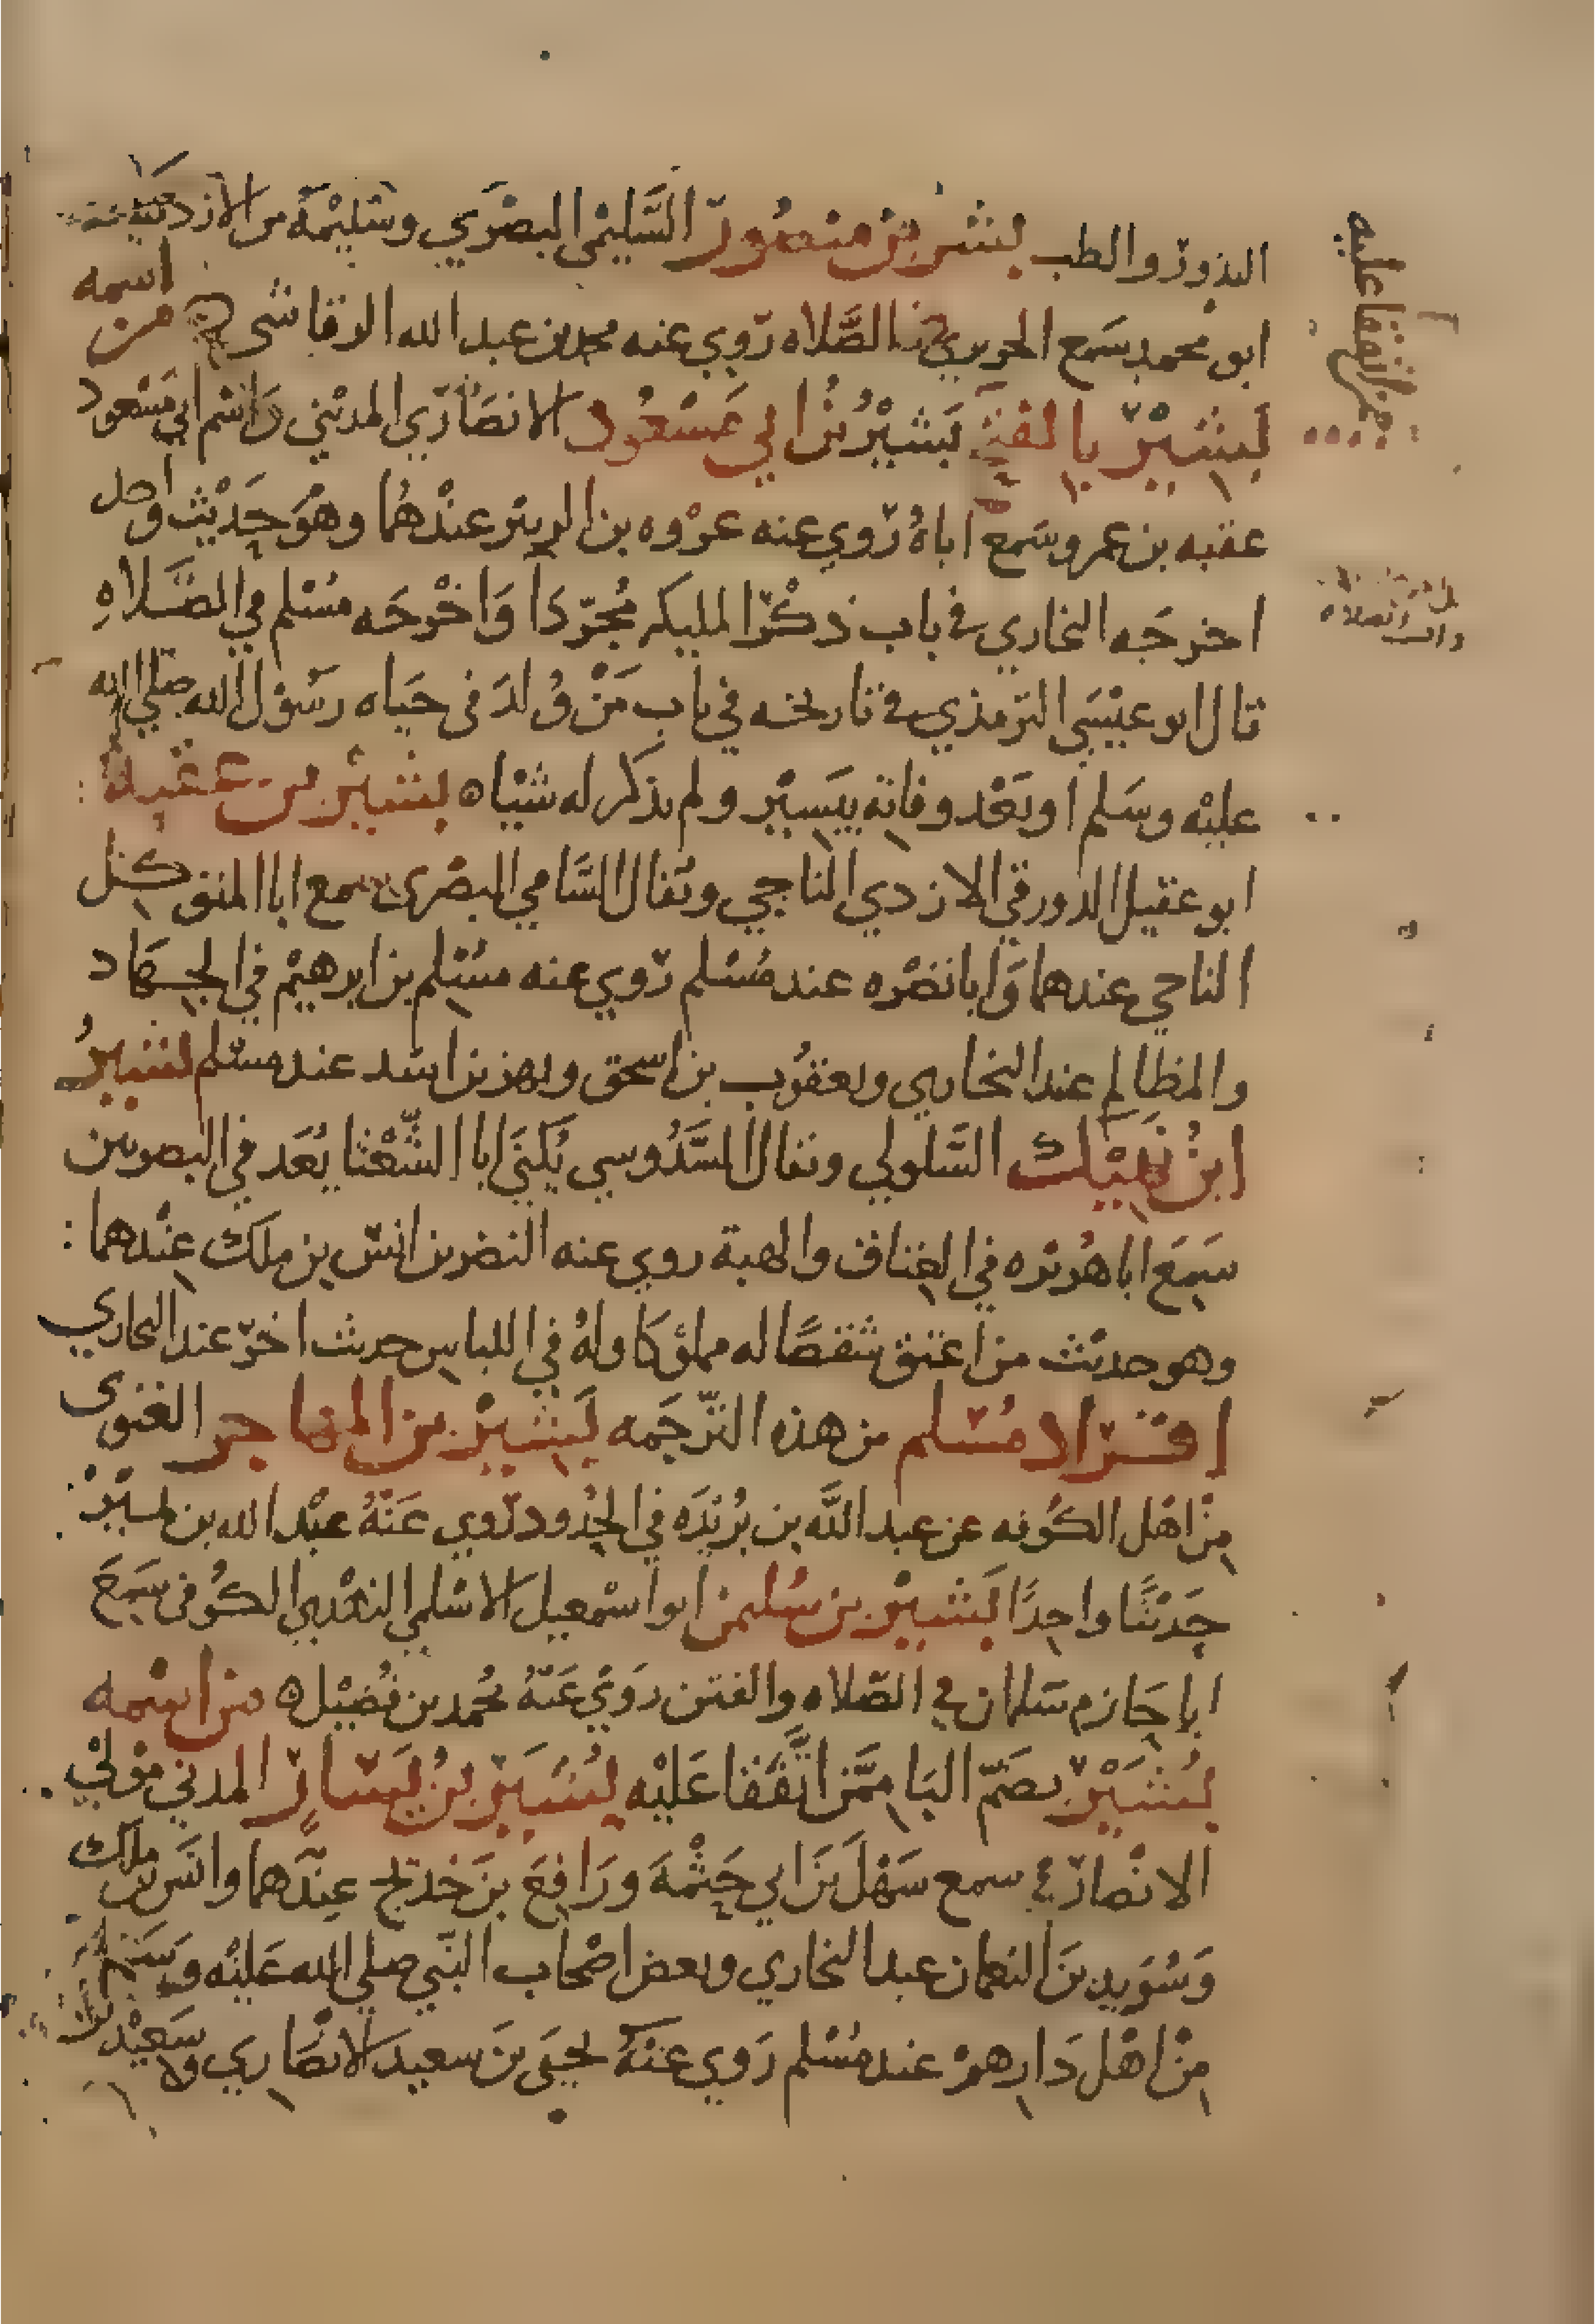 النذور والطب بشر بن منصور السليمي البصري وسليمة من الازد كنيته
ابو محمد سمع الجريري في الصلاه روي عنه محمد بن عبد الله الرقاشي من اسمه
بشير بالفتح بشير بن ابي مسعود الانصاري المدني واسم ابي مسعود
عقبه بن عمرو سمع اباه روي عنه عروه بن الزبير عندهما وهو حديث واحد
اخرجه البخاري في باب ذكر المليكه مجردا واخرجه مسلم في الصلاه
قال ابو عيسي الترمذي في تاريخه في باب من ولد في حياه رسول الله صلي الله
عليه وسلم او بعد وفاته بيسير ولم يذكر له شيا ه بشير بن عقبة
ابو عقيل الدورقي الازدي الناجي ويقال السامي البصري سمع ابا المتوكل
الناجي عندهما وابا نضره عند مسلم روي عنه مسلم بن ابرهيم في الجهاد
والمظالم عند البخاري ويعقوب بن اسحق وبهز بن اسد عند مسلم بشير
ابن نهيك السلولي ويقال السدوسي يكنى ابا الشعثا يعد في البصريين
سمع ابا هريره في العتاق والهبة روي عنه النضر بن انس بن ملك عندهما :
وهو حديث من اعتق شقصا له مملوكا وله في اللباس حديث اخر عند البخاري
افراد مسلم من هذه الترجمه بشير بن المهاجر الغنوي
من اهل الكوفه عن عبد الله بن بريده في الحدود روي عنه عبد الله بن نمير
حديثا واحدا بشير بن سليمن ابو اسمعيل الاسلمي النهدي الكوفي سمع
ابا حازم سلمان في الصلاه والفتن روي عنه محمد بن فضيل ه من اسمه
بشير بضم البا ممن اتفقا عليه بشير بن يسار المدني مولي
الانصار سمع سهل بن ابي حثمة ورافع بن خديج عندهما وانس بن ملك
وسويد بن النعمان عند البخاري وبعض اصحاب النبي صلي الله عليه وسلم
من اهل دارهم عند مسلم روي عنه يحيى بن سعيد الانصاري وسعيد بن
ممن اتفقا عليه